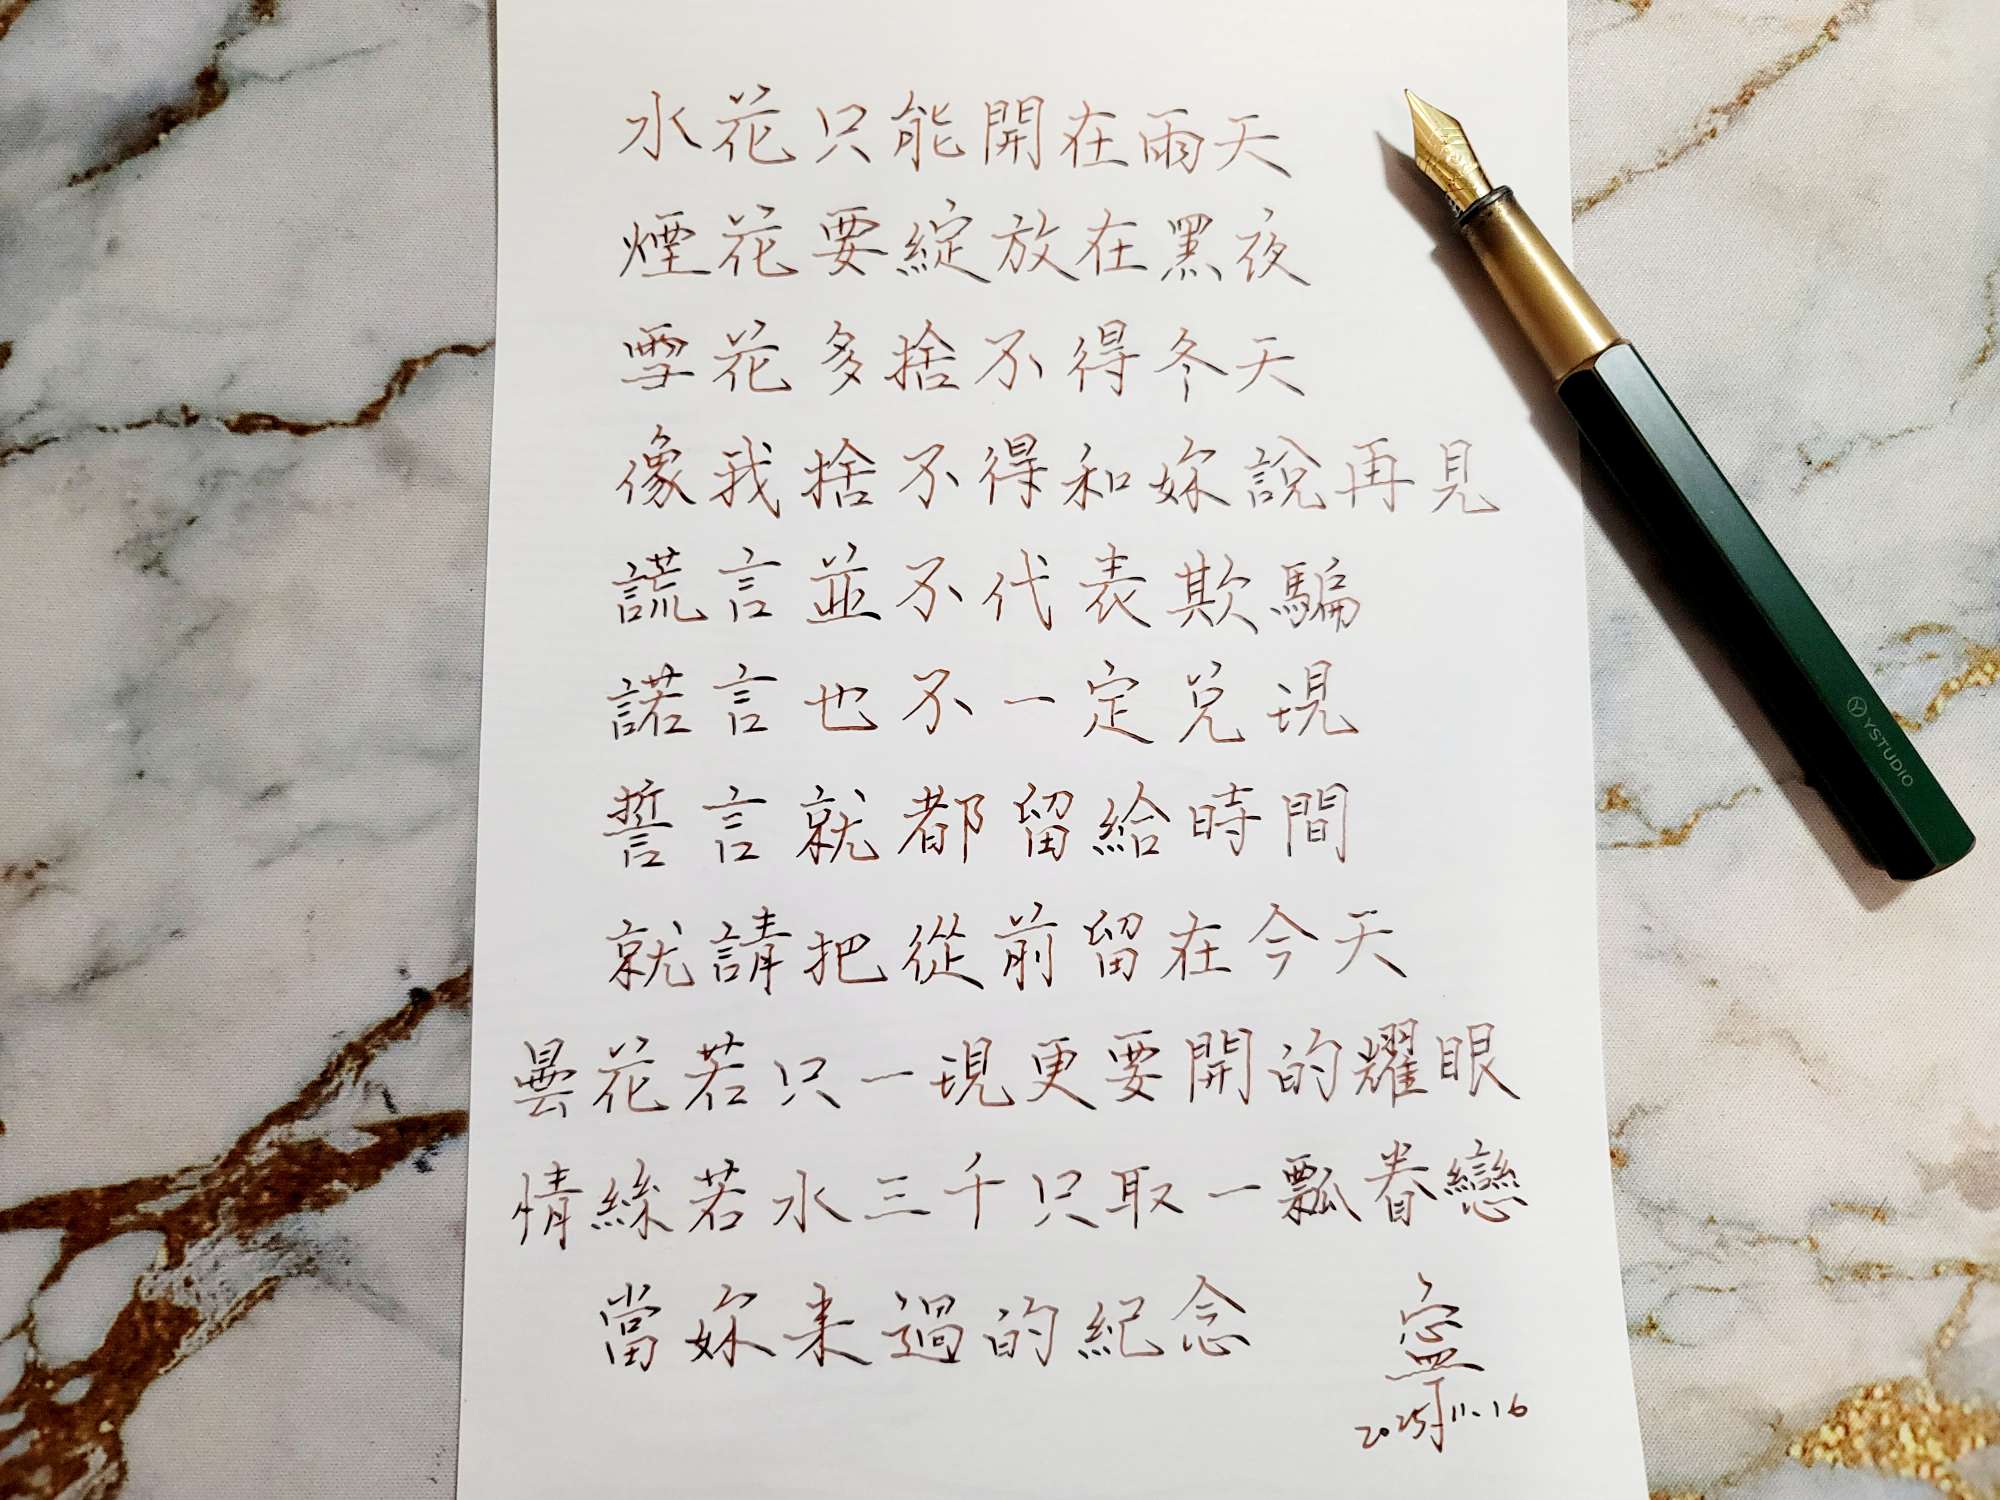 水花只能開在雨天
煙花要綻放在黑夜
雪花多捨不得冬天
像我捨不得和妳說再見
謊言並不代表欺騙
諾言也不一定兌現
誓言就都留給時間
就請把從前留在今天
曇花若只一現更要開的耀眼
情絲若水三千只取一瓢眷戀
當妳来過的紀念
寧
2025 11.16
YSTUDIO